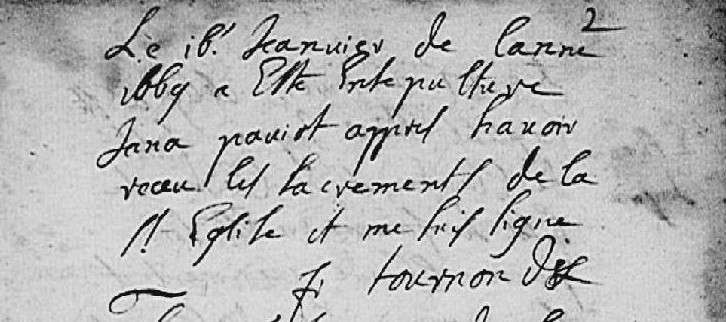 2
Le 16.e Jeanvier de lanne
1669 a Esté Ensepulture
Jana paviot appres havoir
receu les sacrements de la
St Eglise et me suis signe
F. tournon